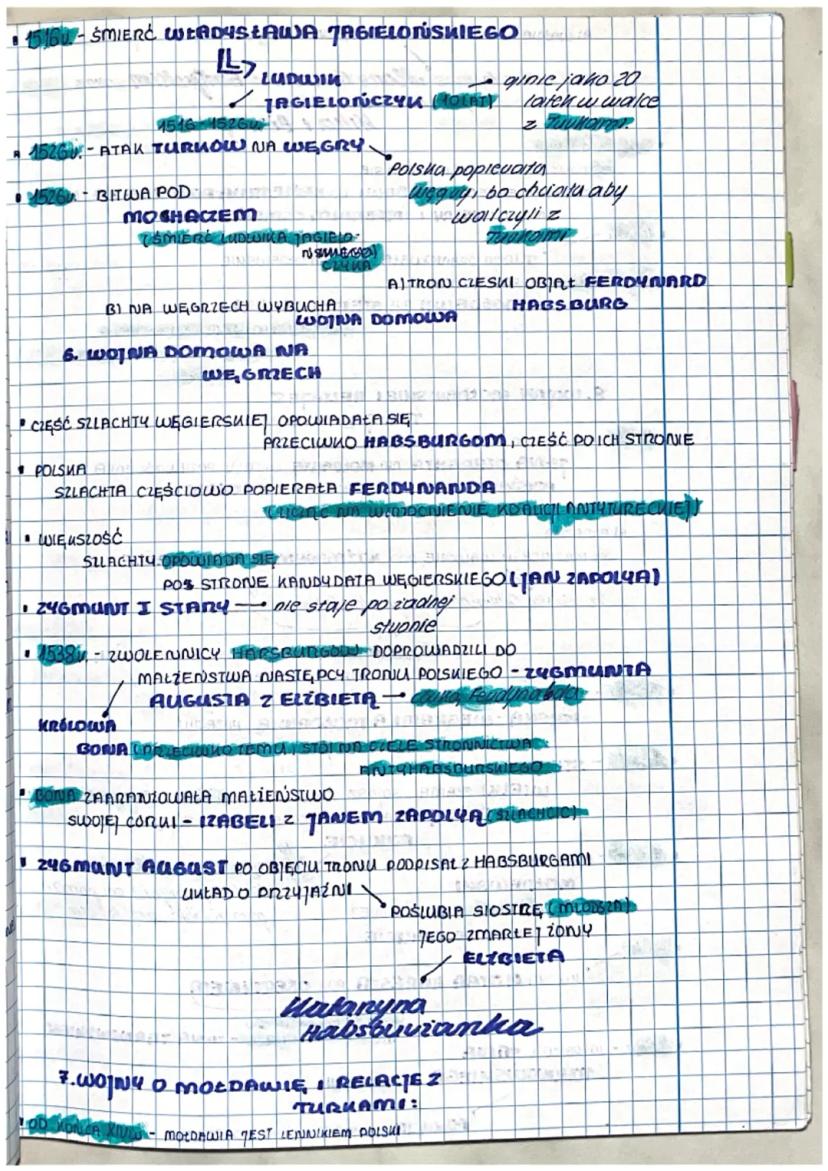 1516r. - ŚMIERĆ WŁADYSŁAWA JAGIELOŃSKIEGO
LUDWIK
JAGIELOŃCZYK (10LAT)
1516-1526r.
ginie jako 20
latek w walce
z Turkami.
1526r. - ATAK TURKÓW NA WĘGRY
Polska popierała
Węgry, bo chciała aby
walczyli z
Turkami
1526r. - BITWA POD
MOCHACZEM
(ŚMIERĆ LUDWIKA JAGIELO-
CZYKA
A) TRON CZESKI OBJĄŁ FERDYNARD
HABSBURG
B) NA WĘGRZECH WYBUCHA
WOJNA DOMOWA
6. WOJNA DOMOWA NA
WĘGRZECH
CZĘŚĆ SZLACHTY WĘGIERSKIEJ OPOWIADAŁA SIĘ
PRZECIWKO HABSBURGOM, CZEŚĆ PO ICH STRONIE
POLSKA
SZLACHTA CZĘŚCIOWO POPIERAŁA FERDYNANDA
(LICZĄC NA WZMOCNIENIE KOALICJI ANTYTURECKIEJ)
WIĘKSZOŚĆ
SZLACHTY OPOWIADA SIĘ
PO STRONE KANDYDATA WĘGIERSKIEGO (JAN ZAPOLYA)
ZYGMUNT I STARY → nie staje po żadnej
stronie
1538r. - ZWOLENNICY HABSBURGÓW DOPROWADZILI DO
MAŁŻEŃSTWA NASTĘPCY TRONU POLSKIEGO - ZYGMUNTA
AUGUSTA Z ELŻBIETĄ → córką Ferdynanda
KRÓLOWA
BONA (PRZECIWKO TEMU I STOI NA CZELE STRONNICTWA
ANTYHABSBURSKIEGO
BONA ZAARANŻOWAŁA MAŁŻEŃSTWO
SWOJEJ CÓRKI - IZABELI Z JANEM ZAPOLYĄ (SZLACHCIC)
ZYGMUNT AUGUST PO OBJĘCIU TRONU PODPISAŁ Z HABSBURGAMI
UKŁAD O PRZYJAŹNI
POŚLUBIA SIOSTRĘ (MŁODSZA)
JEGO ZMARŁEJ ŻONY
ELŻBIETA
Katarzyna
Habsburżanka
7. WOJNY O MOŁDAWIĘ I RELACJE Z
TURKAMI:
OD KOŃCA XIVW - MOŁDAWIA JEST LENNIKIEM POLSKI